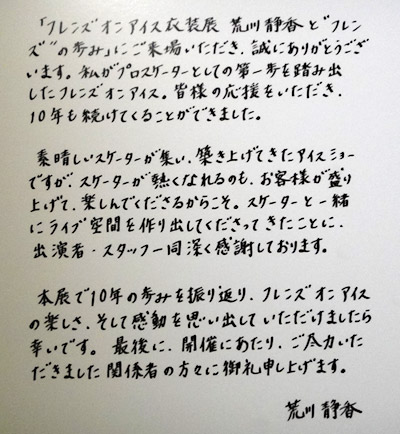 「フレンズオンアイス衣装展 荒川静香と"フレン
ズ"の歩み」にご来場いただき、誠にありがとうござ
います。私がプロスケーターとしての第一歩を踏み出
したフレンズオンアイス。皆様の応援をいただき、
10年も続けてくることができました。
素晴しいスケーターが集い、築き上げてきたアイスショー
ですが、スケーターが熱くなれるのも、お客様が盛り
上げて、楽しんでくださるからこそ。スケーターと一緒
にライブ空間を作り出してくださってきたことに、
出演者・スタッフ一同深く感謝しております。
本展で10年の歩みを振り返り、フレンズオンアイス
の楽しさ、そして感動を思い出していただけましたら
幸いです。最後に、開催にあたり、ご尽力いた
だきました関係者の方々に御礼申し上げます。
荒川静香